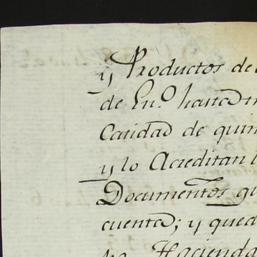 y Productos de
de En.º hasta
Catidad de quin
y lo Acreditan
Documentos qu
cuenta; y qued
Hacienda